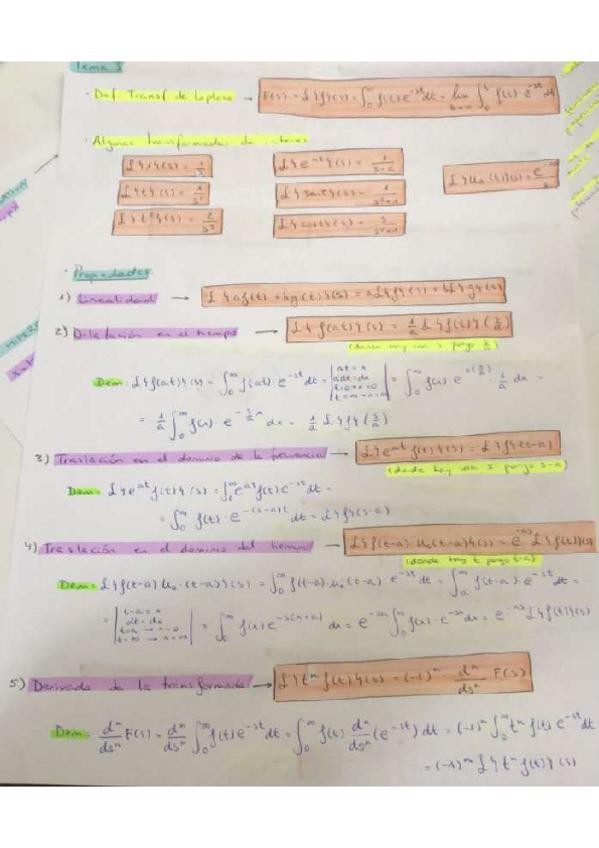 Tema 3
· Def. Transf de Laplace → F(s) = ℒ{f}(s) = ∫₀^∞ f(t) e^{-st} dt = lim ∫₀ f(t) · e^{-st} dt
· Algunas transformadas de interes
ℒ{1}(s) = 1/s   ℒ{e^{at}}(s) = 1/(s-a)   ℒ{u_a(t)}(s) = e^{-as}/s
ℒ{t}(s) = 1/s²   ℒ{sen t}(s) = 1/(s²+1)
ℒ{t²}(s) = 2/s³   ℒ{cos t}(s) = s/(s²+1)
· Propiedades
1) Linealidad → ℒ{af(t) + bg(t)}(s) = aℒ{f}(s) + bℒ{g}(s)
2) Dilatación en el tiempo → ℒ{f(at)}(s) = 1/a ℒ{f(t)}(s/a)
(donde hay una s pongo s/a)
Dem: ℒ{f(at)}(s) = ∫₀^∞ f(at) · e^{-st} dt = | at = u
a dt = du
t=0 → u=0
t=∞ → u=∞ | = ∫₀^∞ f(u) · e^{-s(u/a)} · 1/a du =
= 1/a ∫₀^∞ f(u) · e^{-s/a u} du = 1/a ℒ{f}(s/a)
3) Traslación en el dominio de la frecuencia → ℒ{e^{at} f(t)}(s) = ℒ{f}(s-a)
(donde hay una s pongo s-a)
Dem: ℒ{e^{at} f(t)}(s) = ∫₀^∞ e^{at} f(t) e^{-st} dt =
= ∫₀^∞ f(t) · e^{-(s-a)t} dt = ℒ{f}(s-a)
4) Traslación en el dominio del tiempo → ℒ{f(t-a) · u₀(t-a)}(s) = e^{-as} ℒ{f(t)}(s)
(donde hay t pongo t-a)
Dem: ℒ{f(t-a) u₀ · (t-a)}(s) = ∫₀^∞ f(t-a) · u₀(t-a) · e^{-st} dt = ∫ₐ^∞ f(t-a) · e^{-st} dt =
= | t-a = u
dt = du
t=a → u=0
t=∞ → u=∞ | = ∫₀^∞ f(u) e^{-s(u+a)} du = e^{-sa} ∫₀^∞ f(u) · e^{-su} du = e^{-as} ℒ{f(t)}(s)
5) Derivada de la transformada → ℒ{tⁿ f(t)}(s) = (-1)ⁿ · dⁿ/dsⁿ F(s)
Dem: dⁿ/dsⁿ F(s) = dⁿ/dsⁿ ∫₀^∞ f(t) e^{-st} dt = ∫₀^∞ f(t) dⁿ/dsⁿ (e^{-st}) dt = (-1)ⁿ ∫₀^∞ tⁿ f(t) e^{-st} dt
= (-1)ⁿ ℒ{tⁿ f(t)}(s)